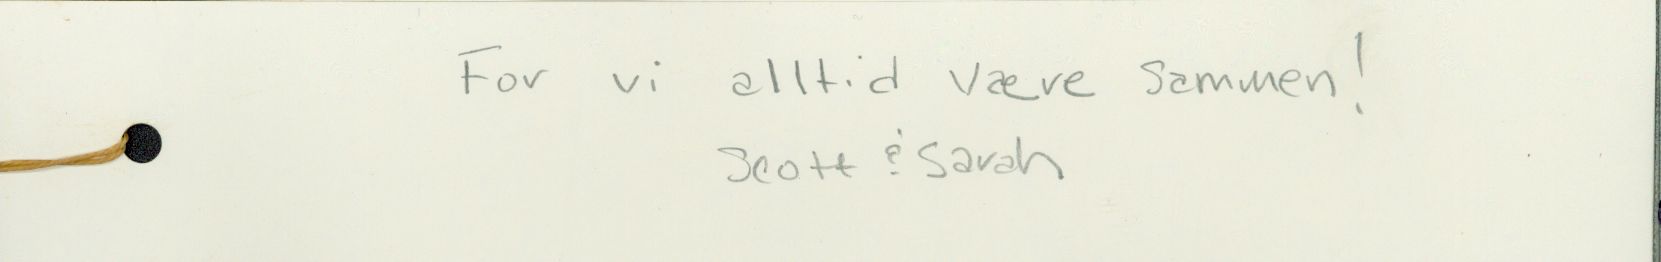 For vi alltid være sammen!
Scott & Sarah